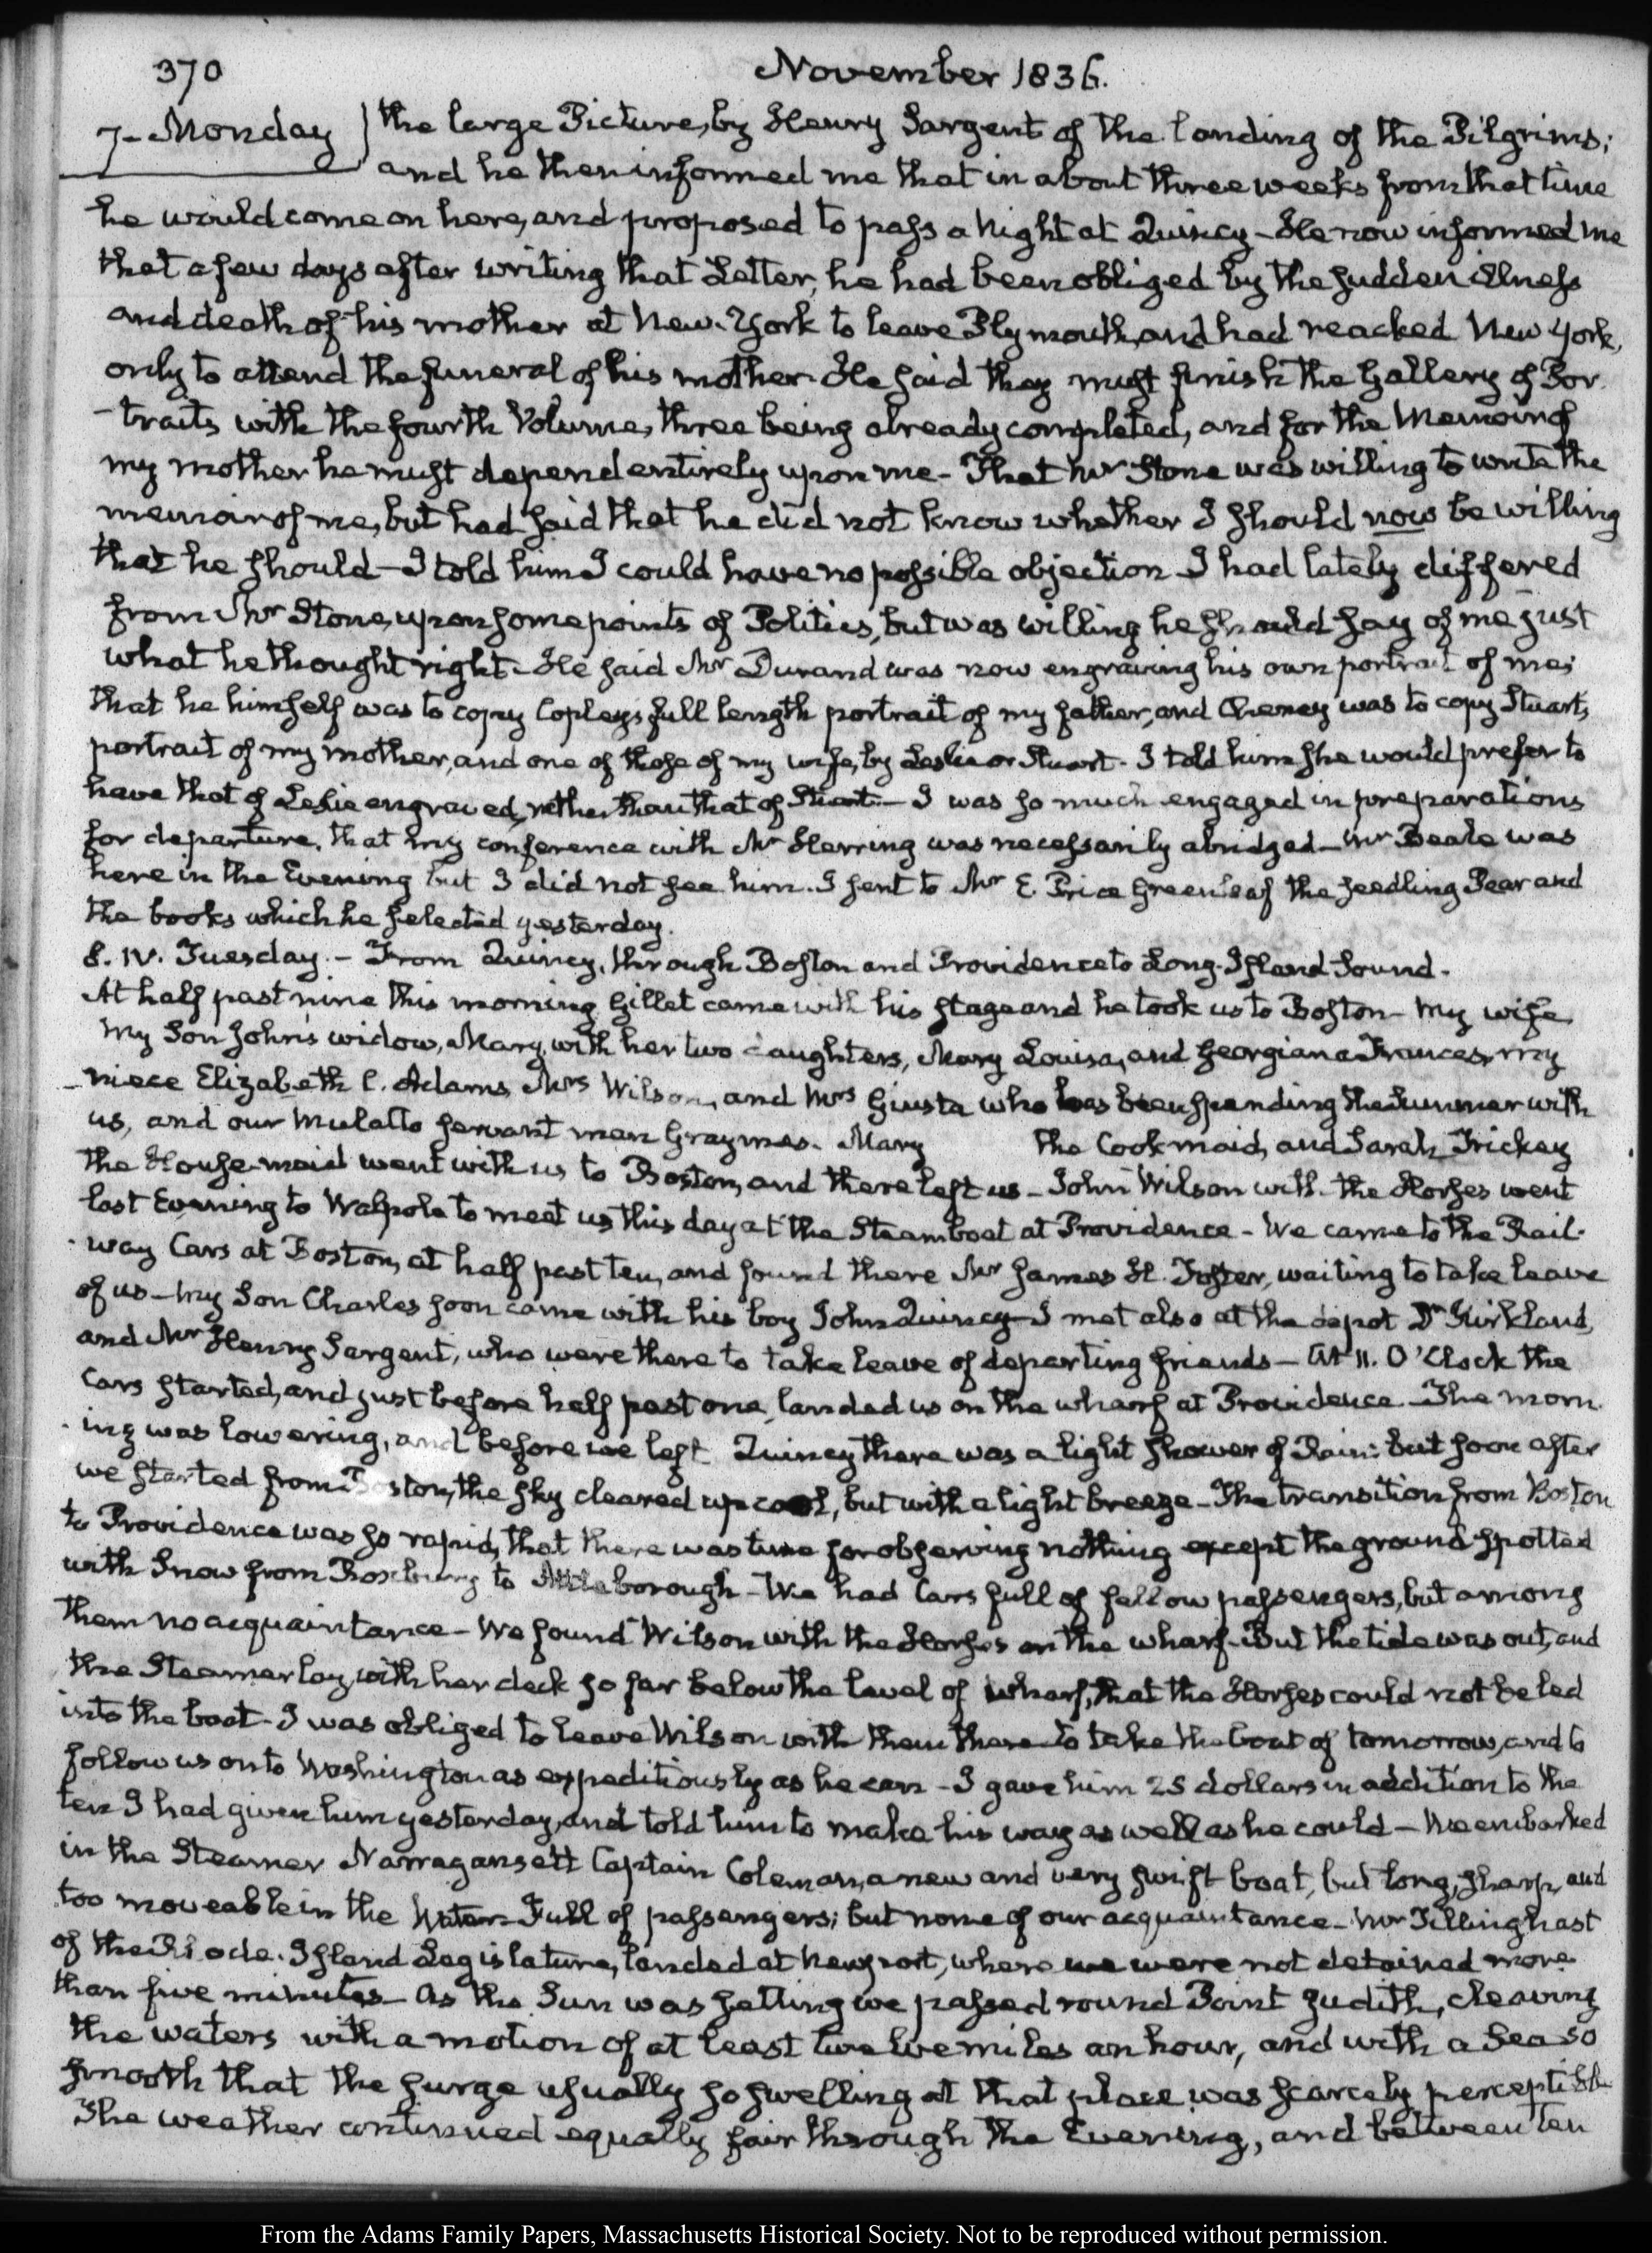 370
November 1836.
7– Monday
the large Picture, by Henry Sargent of the landing of the Pilgrims;
and he then informed me that in about three weeks from that time
he would come on here, and proposed to pass a Night at Quincy – He now informed me
that a few days after writing that Letter, he had been obliged by the sudden illness
and death of his mother at New-York to leave Plymouth, and had reached New York,
only to attend the funeral of his mother. He said they must finish the Gallery of Por
-traits with the fourth Volume, three being already completed, and for the Memoir of
my mother he must depend entirely upon me – That Mr Stone was willing to write the
memoir of me, but had said that he did not know whether I should now be willing
that he should – I told him I could have no possible objection I had lately differed
from Mr Stone, upon some points of Politics, but was willing he should say of me just
what he thought right – He said Mr Durand was now engraving his own portrait of me;
that he himself was to copy Copley's full length portrait of my father, and Cheney was to copy Stuart's
portrait of my mother, and one of those of my wife, by Leslie or Stuart – I told him she would prefer to
have that of Leslie engraved, rather than that of Stuart – I was so much engaged in preparations
for departure, that my conference with Mr Herring was necessarily abridged – Mr Beale was
here in the Evening but I did not see him. I sent to Mr E. Price Greenleaf the seedling Pear and
the books which he selected yesterday.
8. IV. Tuesday. – From Quincy, through Boston and Providence to Long-Island Sound.
At half past nine this morning Gillet came with his stage and he took us to Boston – My wife
My Son John's widow, Mary, with her two daughters, Mary Louisa, and Georgiana Frances, my
niece Elizabeth C. Adams Mrs Wilson, and Mrs Giusta who has been spending the Summer with
us, and our Mulatto servant man Graymes. Mary the Cook maid, and Sarah Trickey
the House-maid went with us to Boston, and there left us – John Wilson with the Horses went
last Evening to Walpole to meet us this day at the Steamboat at Providence – We came to the Rail-
way Cars at Boston, at half past ten, and found there Mr James H. Foster, waiting to take leave
of us – My Son Charles soon came with his boy John Quincy – I met also at the depot Dr Kirkland,
and Mr Henry Sargent, who were there to take leave of departing friends – At 11. O'Clock the
Cars started, and just before half past one, landed us on the wharf at Providence – The morn
-ing was lowering, and before we left Quincy there was a light shower of Rain: but soon after
we started from Boston, the sky cleared up cool, but with a light breeze – The transition from Boston
to Providence was so rapid, that there was time for observing nothing except the ground spotted
with Snow from Roxbury to Attleborough – We had Cars full of fellow passengers, but among
them no acquaintance – We found Wilson with the Horses on the wharf – But the tide was out, and
the Steamer lay, with her deck so far below the level of wharf, that the Horses could not be led
into the boat – I was obliged to leave Wilson with them there to take the boat of tomorrow, and to
follow us on to Washington as expeditiously as he can – I gave him 25 dollars in addition to the
ten I had given him yesterday, and told him to make his way as well as he could – We embarked
in the Steamer Narragansett Captain Coleman, a new and very swift boat, but long, sharp, and
too moveable in the Water – Full of passengers; but none of our acquaintance – Mr Tillinghast
of the Rhode-Island Legislature, landed at Newport, where we were not detained more
than five minutes – As the Sun was setting we passed round Point Judith, cleaving
the waters with a motion of at least twelve miles an hour, and with a Sea so
smooth that the surge usually so swelling at that place was scarcely perceptible
The weather continued equally fair through the Evening, and between ten
From the Adams Family Papers, Massachusetts Historical Society. Not to be reproduced without permission.